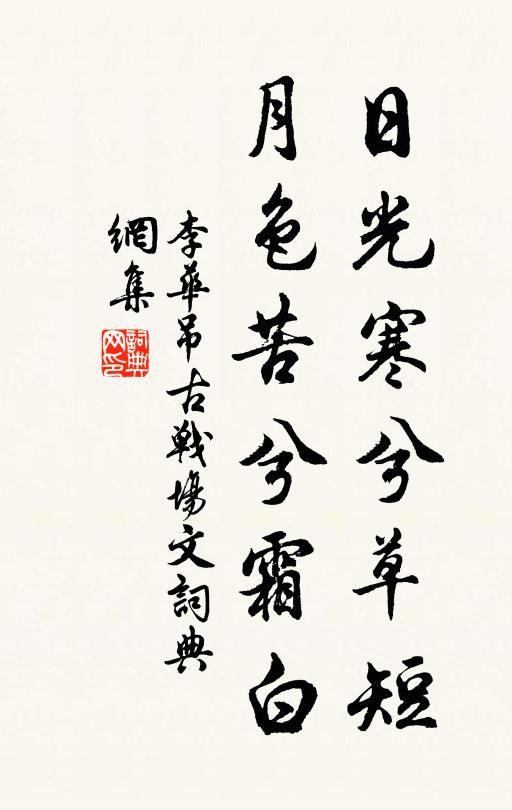 日光寒兮草短
月色苦兮霜白
李華弔古戦場文詞典
網集
詞典
网印